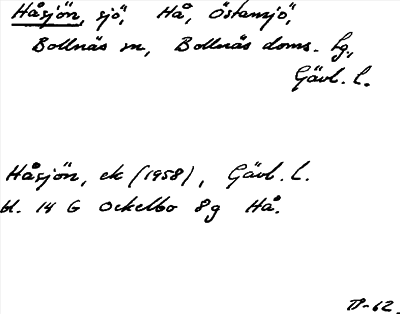 Håsjön, sjö, Hå, Östansjö,
Bollnäs sn, Bollnäs doms. hg.,
Gävl. l.
Håsjön, ek (1958), Gävl. l.
bl. 14 G Ockelbo 8g Hå.